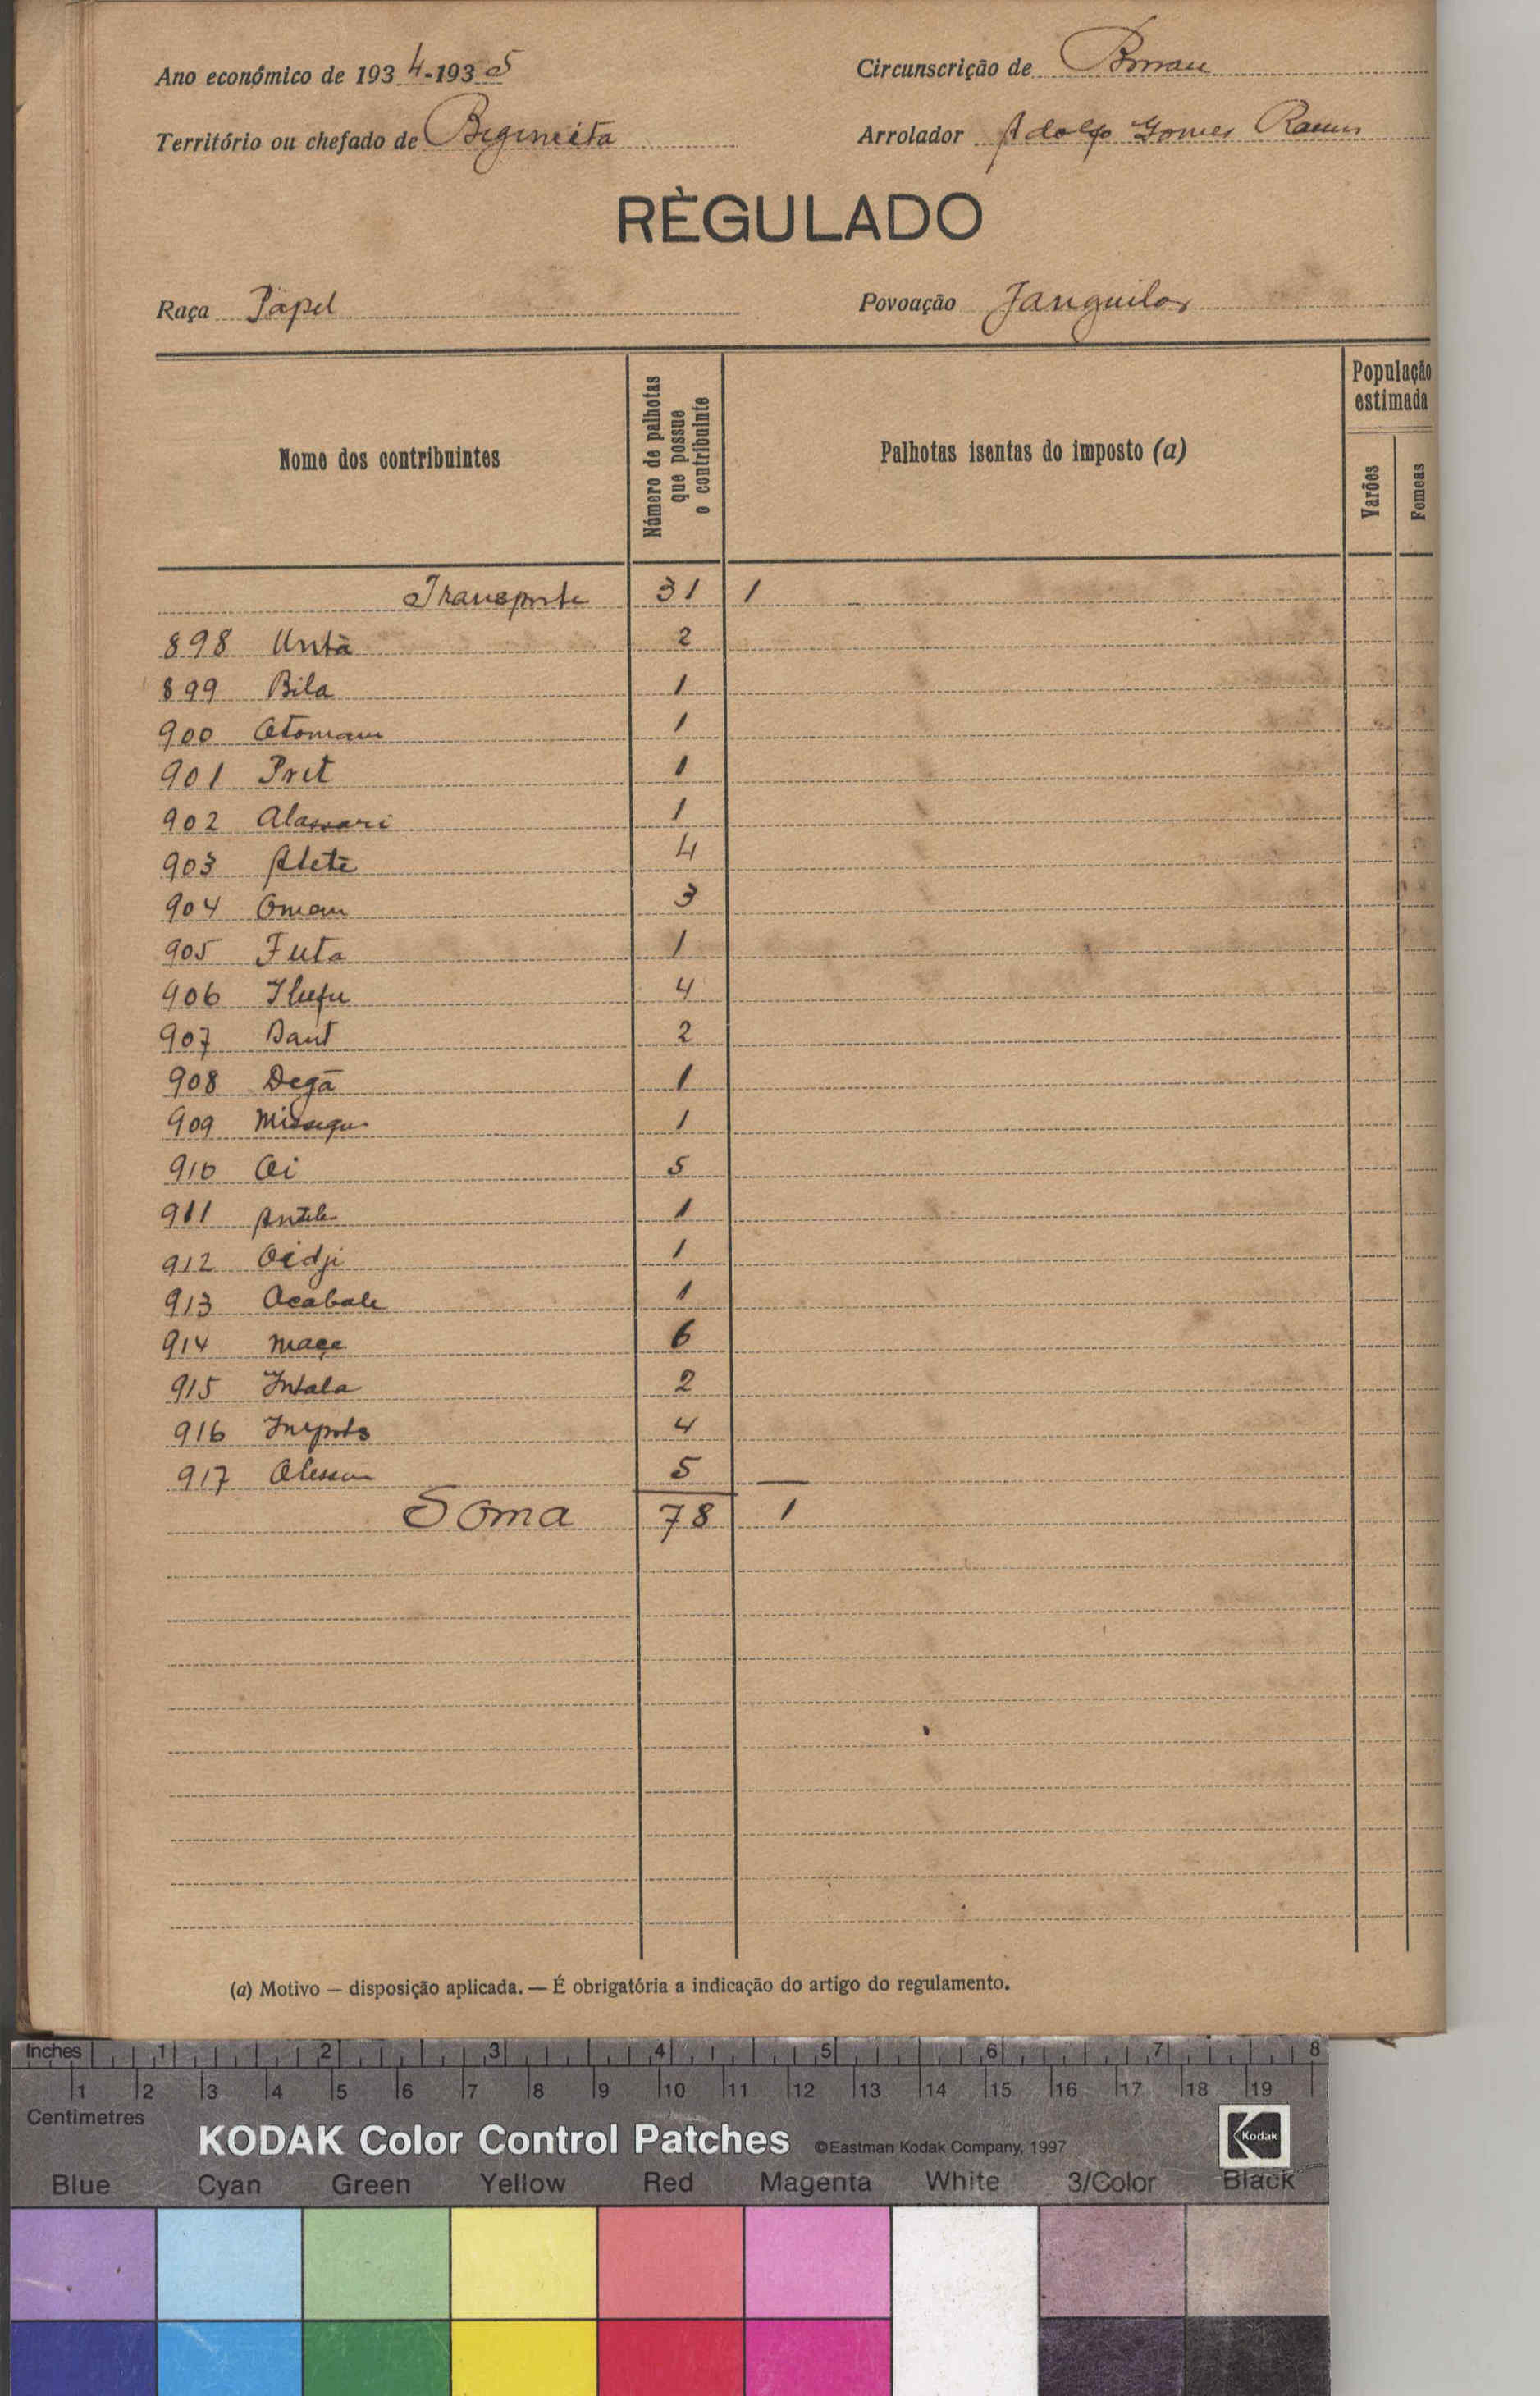 Ano económico de 1934-1935
Circunscrição de Bissau
Território ou chefado de Bigimita
Arrolador Adolfo Gomes Ramos
RÈGULADO
Raça Papel
Povoação Janguilas
Nome dos contribuintes
Número de palhotas que possue o contribuinte
Palhotas isentas do imposto (a)
População estimada
Varões
Femeas
Transporte 31 1
898 Untà 2
899 Bila 1
900 Otomam 1
901 Pret 1
902 Alassari 1
903 Alete 4
904 Omam 3
905 Futa 1
906 Ilufu 4
907 Daut 2
908 Degā 1
909 1
910 Oi 5
911 1
912 Oidji 1
913 Acabale 1
914 Maçe 6
915 Intala 2
916 4
917 5
Soma 78 1
(a) Motivo — disposição aplicada. — É obrigatória a indicação do artigo do regulamento.
Inches 1 2 3 4 5 6 7 8
1 2 3 4 5 6 7 8 9 10 11 12 13 14 15 16 17 18 19
Centimetres
KODAK Color Control Patches ©Eastman Kodak Company, 1997 Kodak
Blue Cyan Green Yellow Red Magenta White 3/Color Black